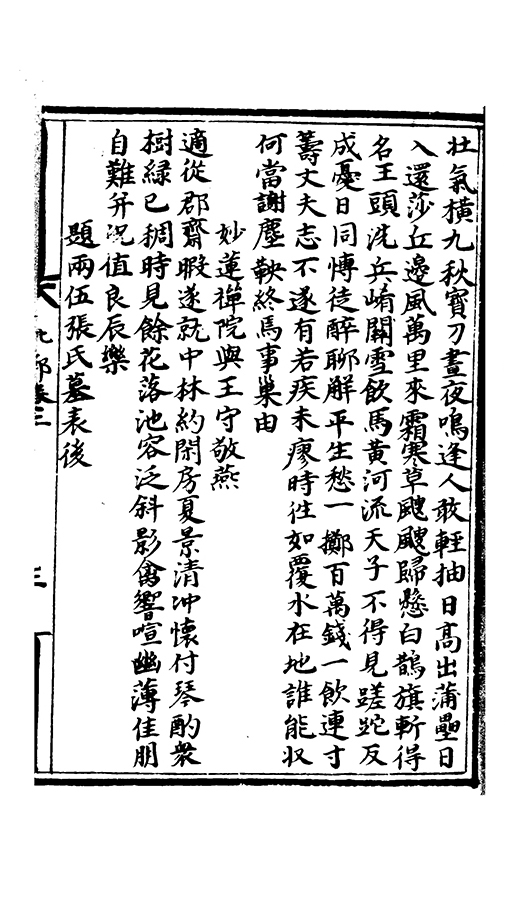 壮氣橫九秋寶刀晝夜鳴逢人敢輕抽日高出蒲壘日
入還莎丘邊風萬里來霜寒草颼颼歸懸白鵲旗斬得
名王頭洗兵崤關雪飲馬黃河流天子不得見蹉跎反
成憂日同慱徒醉聊解平生愁一擲百萬錢一飲連寸
籌丈夫志不遂有若疾未瘳時徃如覆水在地誰能収
何當謝塵鞅終焉事巢由
妙蓮禪院與王守敬燕
適從郡齋暇遂就中林約閑房夏景清冲懷付琴酌衆
樹緑已稠時見餘花落池容泛斜影禽響喧幽薄佳朋
自難并况值良辰樂
題兩伍張氏墓表後
三